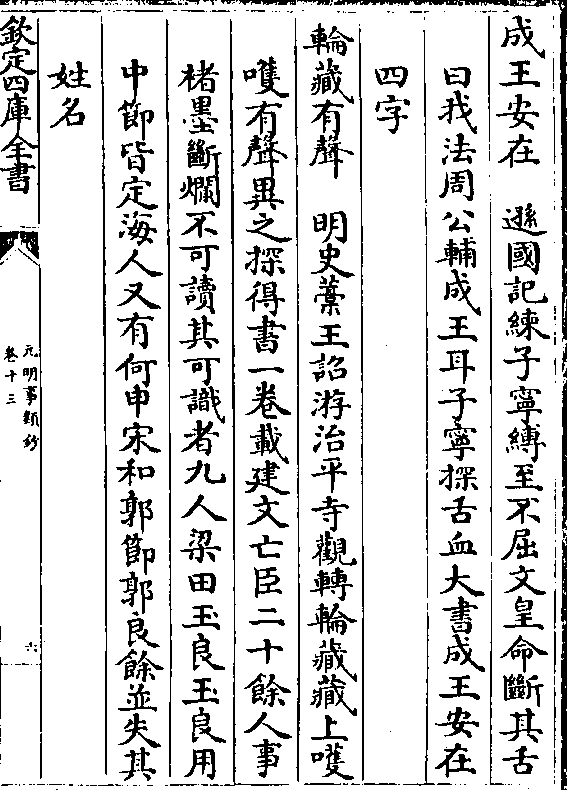 成王安在　遜國記練子寧縛至不屈文皇命斷其舌
曰我法周公輔成王耳子寧探舌血大書成王安在
四字
輪藏有聲　明史藁王詔游治平寺觀轉輪藏藏上嘒
嘒有聲異之探得書一卷載建文亡臣二十餘人事
楮墨斷爛不可讀其可識者九人梁田玉良玉良用
中節皆定海人又有何申宋和郭節郭良餘並失其
姓名
欽定四庫全書
元明事類鈔
卷十三
六